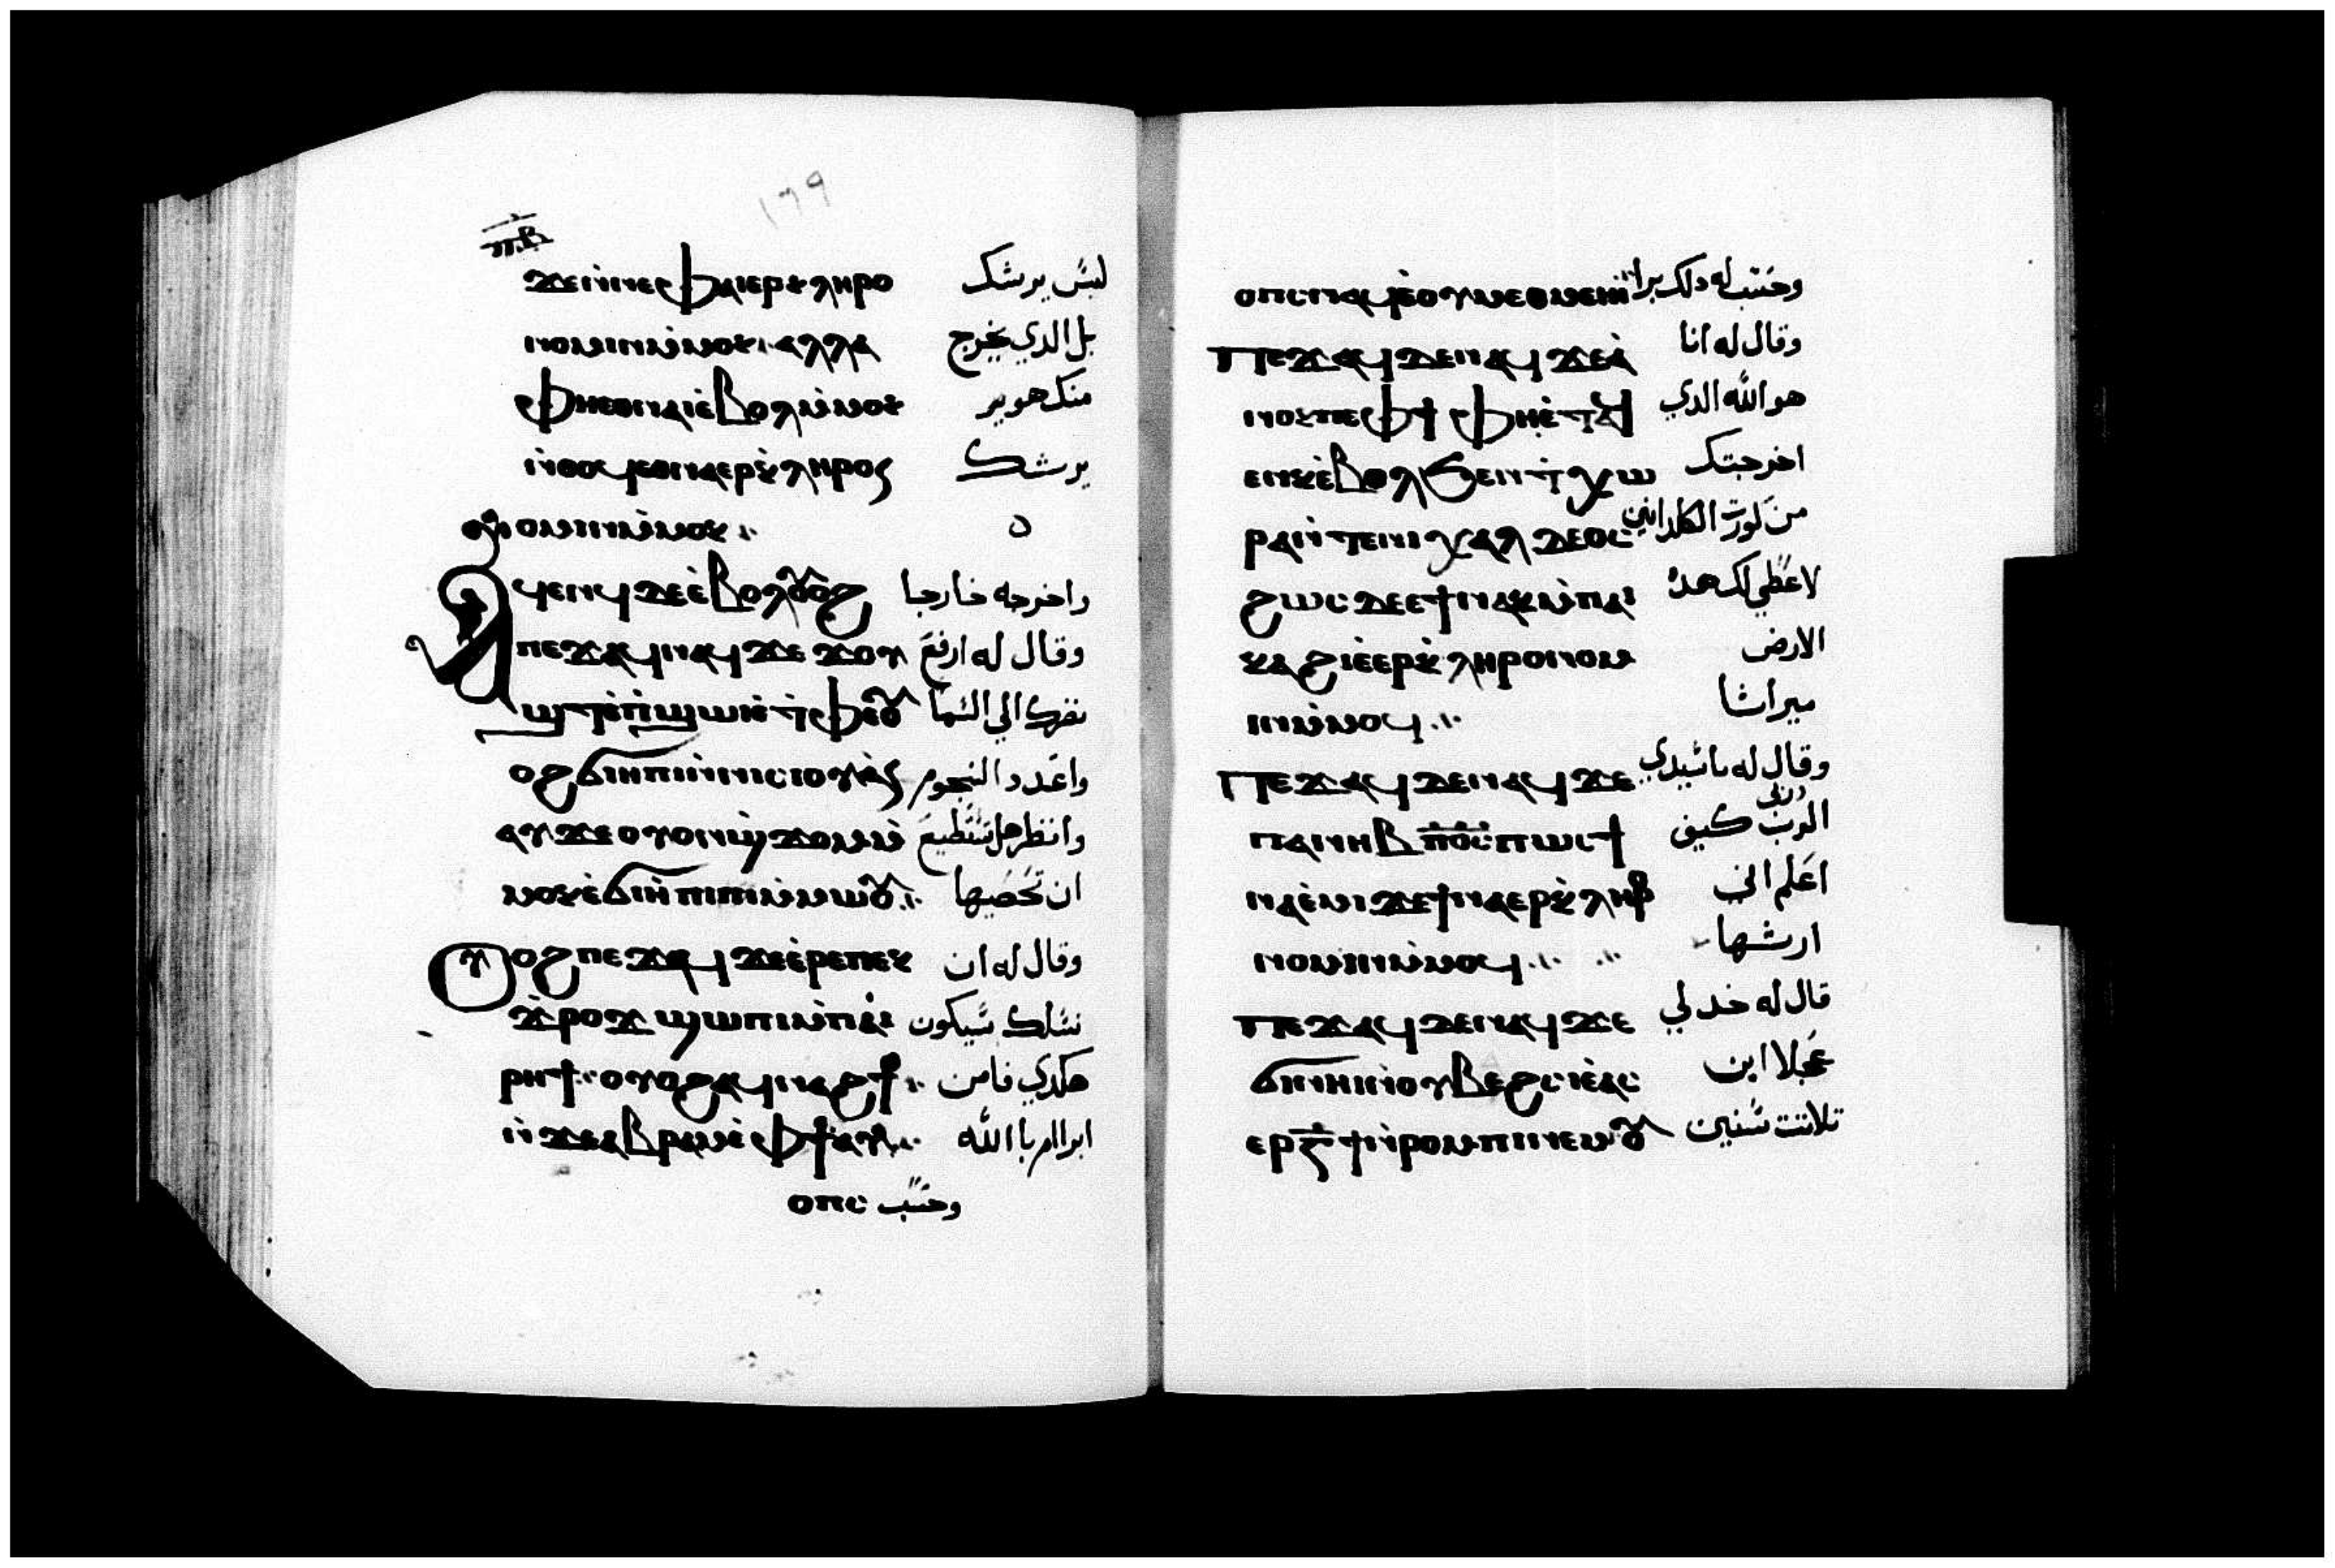 ١٦٩
ⲡ̅ⲃ̅
ϫⲉⲛ̀ⲛⲉⲫⲁⲓⲉⲣⲕⲗⲏⲣⲟ لیس يرشك
ⲛⲟⲙⲓⲛⲙ̀ⲙⲟⲕ· ⲁⲗⲗⲁ بل الدي يخرج
ⲫⲏⲉⲑⲛⲁⲓⲉ̀ⲃⲟⲗⲙ̀ⲙⲟⲕ منك هو ير
ⲛ̀ⲑⲟϥⲉⲑⲛⲁⲉⲣⲕ̀ⲗⲏⲣⲟⲥ يرشك
ⲛⲟⲙⲓⲛⲙ̀ⲙⲟⲕ ⁘
ⲁϥⲉⲛϥⲇⲉⲉ̀ⲃⲟⲗⲟⲩⲟϩ واخرجه خارجا
ⲡⲉϫⲁϥⲛⲁϥϫⲉ ϫⲟⲩ وقال له ارفع
ϣⲧⲉ̀ⲡ̀ϣⲱⲓⲉ̀ⲧ̀ⲫⲉⲟⲩ نظرك الي السما
ⲟϩϭⲓⲏⲡⲓⲛ̀ⲛⲓⲥⲓⲟⲩⲁ̀ⲥ واعدد النجوم
ⲁⲩϫⲉⲟⲩⲟⲛϣ̀ϫⲟⲙⲙ̀ وانظر هل تستطيع
ⲙⲟⲕⲉ̀ϭⲓⲏ̀ⲡⲓⲡⲓⲙ̀ⲙⲱⲟⲩ ⁘ ان تحصيها
ⲟⲩⲟϩⲡⲉϫⲁϥϫⲉⲉ̀ⲣⲉⲡⲉⲕ وقال له ان
ϫ̀ⲣⲟϫ ϣⲱⲡⲓⲙ̀ⲡⲁⲓ نسلك سيكون
ⲣⲏϯ ⁘ ⲟⲩⲟϩⲁϥⲛⲁϩϯ ⁘ هكدي فامن
ⲛ̀ϫⲉⲁⲃⲣⲁⲙⲉ̀ⲫϯⲁⲩ ⁘ ابرام بالله
ⲟⲡⲥ وحسب
ⲟⲡⲥⲛⲁϥⲉ̀ⲟⲩⲙⲉⲑⲙⲏⲓ وحسب له دلك برا
ⲡⲉϫⲁϥⲇⲉⲛⲁϥϫⲉⲁ̀ وقال له انا
ⲛⲟⲕⲡⲉⲫϯ ⲫⲏⲉ̀ⲧⲁϥ هو الله الدي
ⲉⲛⲕⲉ̀ⲃⲟⲗϧⲉⲛⲧ̀ⲭⲱ اخرجتك
ⲣⲁⲛ̀ⲧⲉⲛⲓⲭⲁⲗⲇⲉⲟⲥ من كورت الكلدانيين
ϩⲱⲥⲇⲉⲉϯⲛⲁⲕⲙ̀ⲡⲁⲓ لاعطي لك هده
ⲕⲁϩⲓⲉ̀ⲉⲣⲕ̀ⲗⲏⲣⲟⲛⲟⲙ الارض
ⲓⲛⲙ̀ⲙⲟϥ ⁘ ميراثا
ⲡⲉϫⲁϥⲇⲉⲛⲁϥϫⲉ وقال له ياسيدي
ⲡⲁⲛⲏⲃ ⲡ̅ⲟ̅ⲥ̅ⲡⲱⲥϯ الرب كيف
ⲛⲁⲉ̀ⲙⲓϫⲉϯⲛⲁⲉⲣⲕ̀ⲗⲏⲣⲟ اعلم اني
ⲛⲟⲙⲓⲛⲙ̀ⲙⲟϥ ⁘ ارثها
ⲡⲉϫⲁϥⲇⲉⲛⲁϥϫⲉ قال له خد لي
ϭⲓⲛⲏⲓⲛ̀ⲟⲩⲃⲉϩⲥⲓⲉ̀ⲁⲥ عجلا ابن
ⲉⲣⲅ̅ϯⲛ̀ⲣⲟⲙⲡⲓⲛⲉⲙⲟⲩ تلاتت سنين